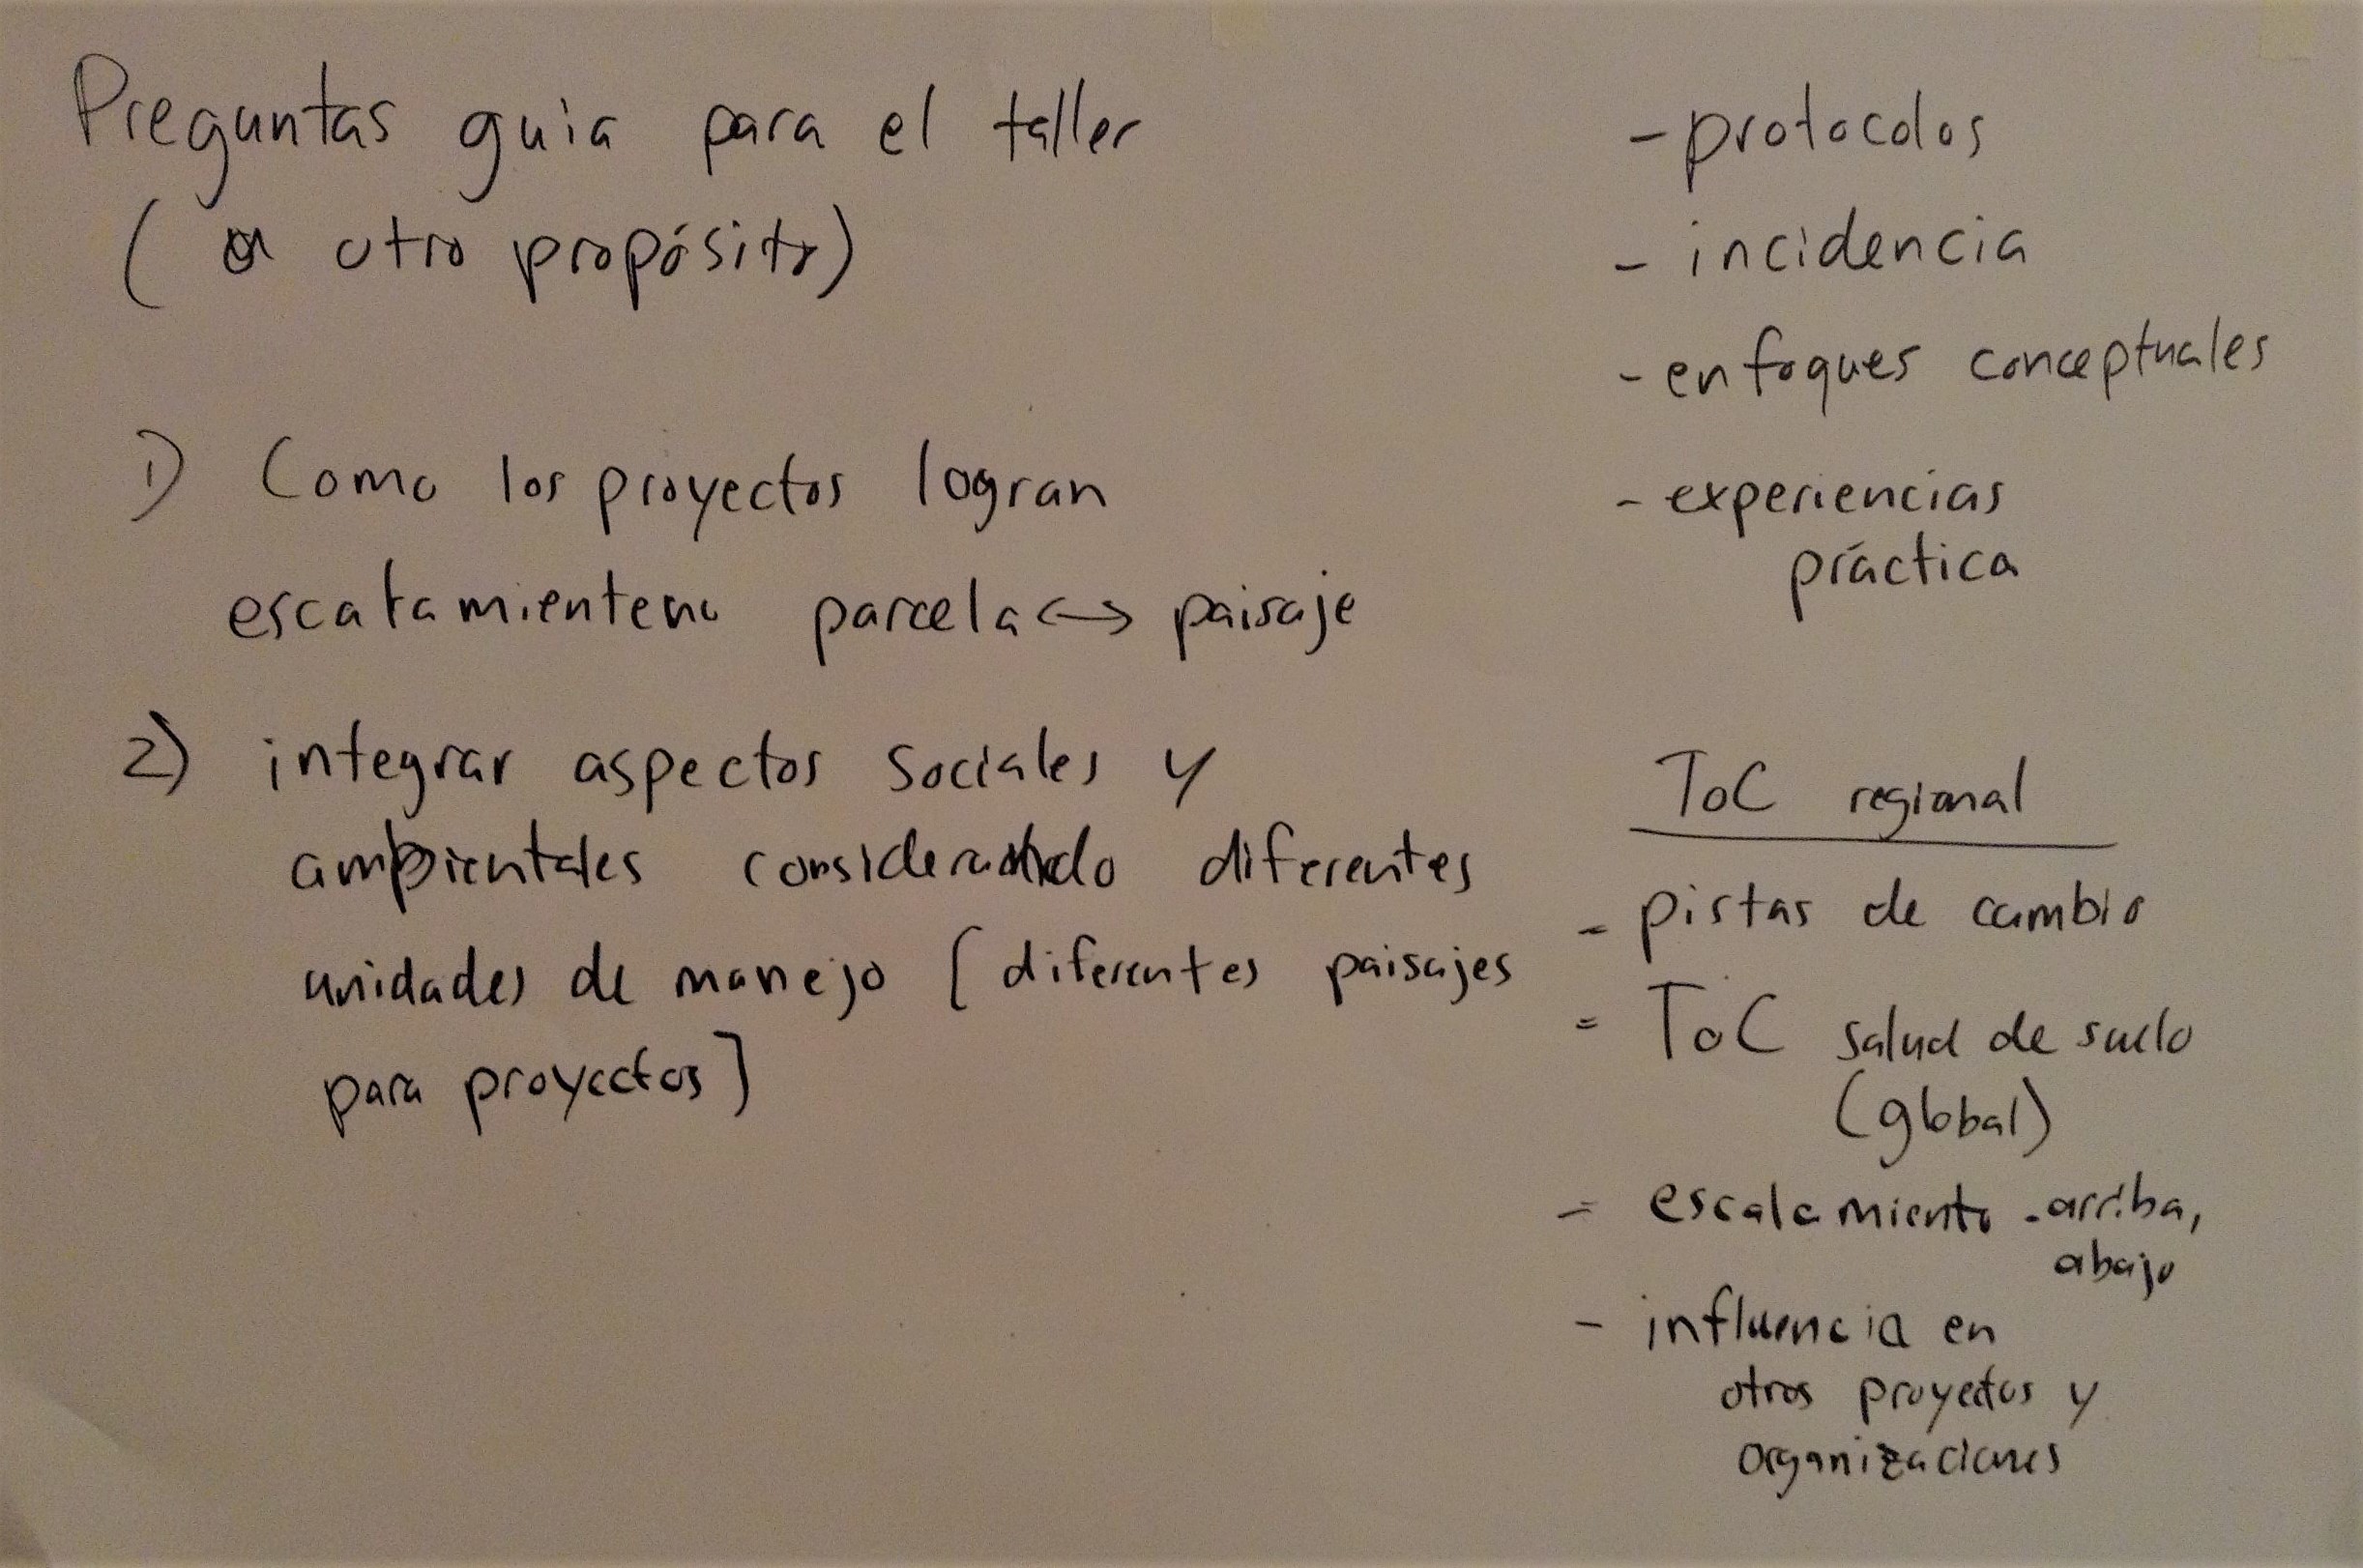 Preguntas guia para el taller
( o otro propósito)
1) Como los proyectos logran
parcela <-> paisaje
2) integrar aspectos sociales y
ambientales considerando diferentes
unidades de manejo [diferentes paisajes
para proyectos]
- protocolos
- incidencia
- enfoques conceptuales
- experiencias
práctica
ToC regional
- pistas de cambio
= ToC salud de suelo
(global)
= escalamiento - arriba,
abajo
- influencia en
otros proyectos y
organizaciones